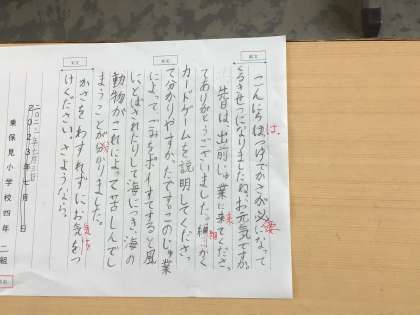 こんにちは、つゆでかさが必要になって
くるきせつになりましたね。お元気ですか。
先日は、出前じゅ業に来てくださっ
てありがとうございました。細かく
カードゲームを説明してくださっ
て分かりやすかったです。このじゅ業
によってごみをポイすてすると風
にとばされたりして海につき、海の
動物がこれによって苦しんでし
まうことが分かりました。
かさをわすれずにお気をつ
けください。さようなら。
二〇二三年七月三日
2023年七月 日
東保見小学校四年 二組